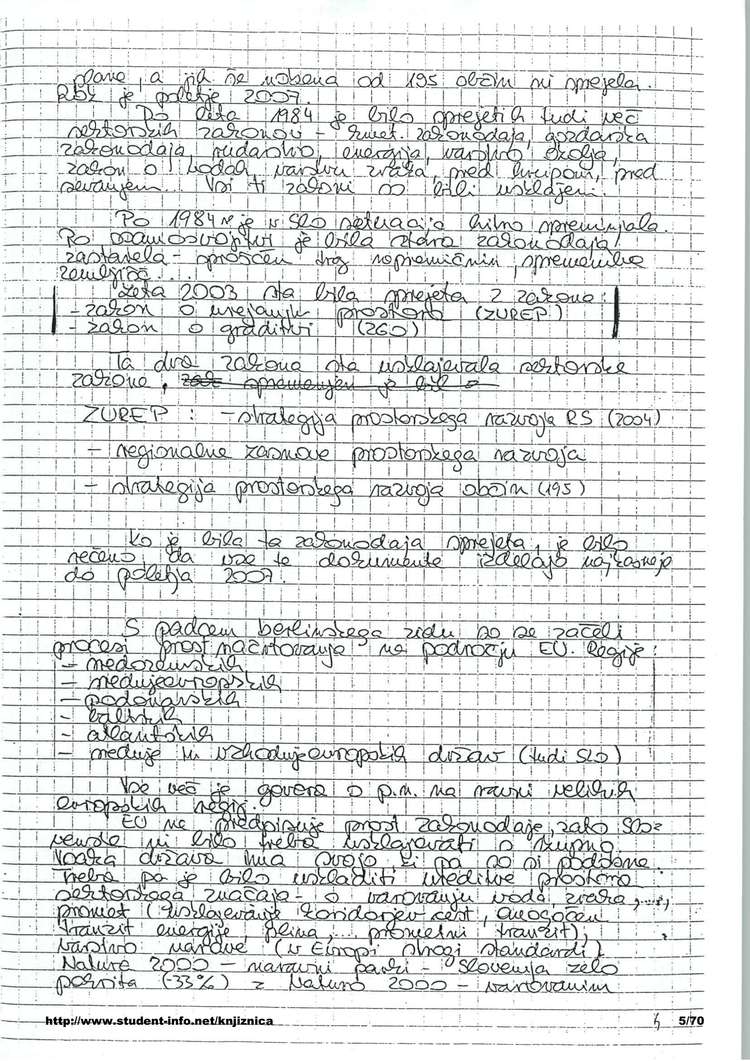 plane, a jih še nobena od 195 občin ni sprejela.
Rok je poletje 2007.
Do leta 1984 je bilo sprejetih tudi več
sektorskih zakonov - kmet. zakonodaja, gozdarska
zakonodaja, rudarstvo, energija, varstvo okolja,
zakon o vodah, varstvu zraka, pred hrupom, pred
sevanjem... Vsi ti zakoni so bili usklajeni.
Po 1984 se je v SLO situacija hitro spreminjala.
Po osamosvojitvi je bila stara zakonodaja
zastarela - sproščen trg nepremičnin, spremembe
zemljišč....
Leta 2003 sta bila sprejeta 2 zakona:
- zakon o urejanju prostora (ZUREP)
- zakon o graditvi (ZGO)
Ta dva zakona sta usklajevala sektorske
zakone,
ZUREP: - strategija prostorskega razvoja RS (2004)
- regionalne zasnove prostorskega razvoja
- strategija prostorskega razvoja občin (195)
Ko je bila ta zakonodaja sprejeta, je bilo
rečeno, da vse te dokumente izdelajo najkasneje
do poletja 2007.
S padcem berlinskega zidu so se začeli
procesi prost. načrtovanja na področju EU. Regije:
- sredozemskih
- srednjeevropskih
- podonavskih
- baltskih
- atlantskih
- srednje in vzhodnjeevropskih držav (tudi SLO)
Vse več je govora o p.n. na ravni velikih
evropskih regij.
EU ne predpisuje prost. zakonodaje, zato Slo-
venske ni bilo treba usklajevati s skupno.
Vsaka država ima svojo, ki pa so si podobne.
Treba pa je bilo uskladiti ureditve prostora
sektorskega značaja - o varovanju voda, zraka,...,
promet (usklajevanje koridorjev cest, omogočen
tranzit energije, plina,... prometni tranzit),
varstvo narave (v Evropi strogi standardi)
Natura 2000 - naravni parki - Slovenija zelo
pokrita (33%) z Naturo 2000 - varovanim
http://www.student-info.net/knjiznica
5
5/70